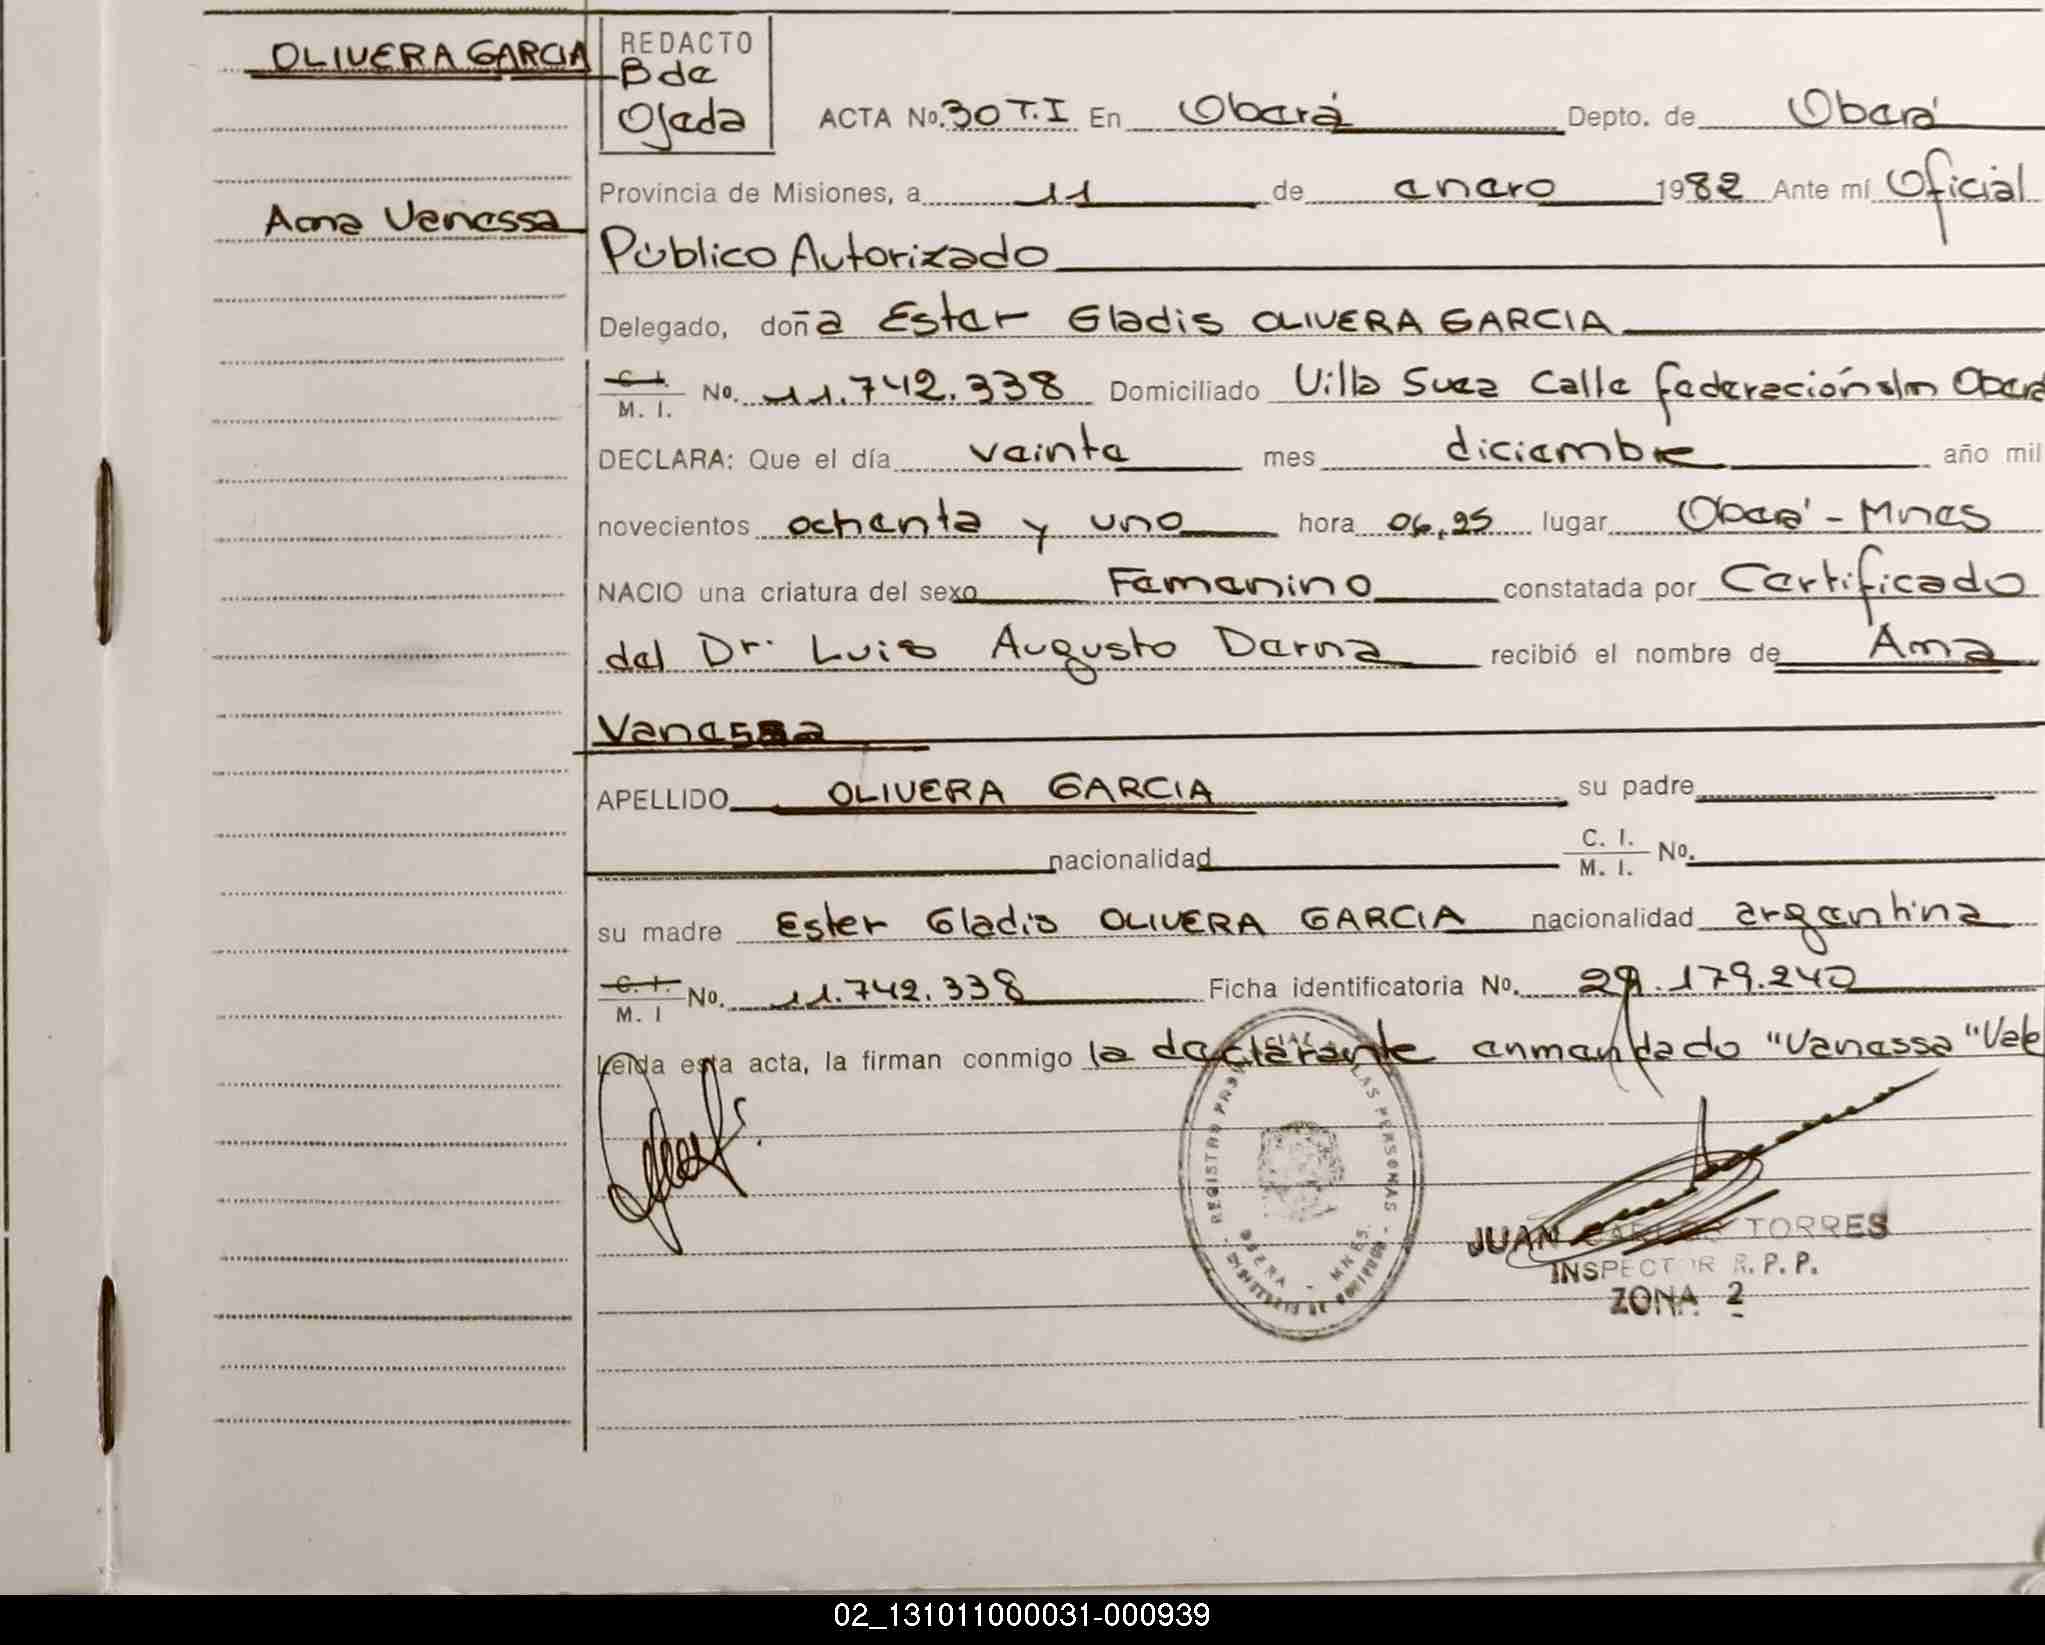 OLIVERA GARCIA
Ana Vanessa
REDACTO
B de
Ojeda
ACTA No. 30 T.I En Oberá Depto. de Oberá
Provincia de Misiones, a 11 de enero 1982 Ante mí Oficial
Público Autorizado
Delegado, doña Ester Gladis OLIVERA GARCIA
C. I. M. I. No. 11.742.338 Domiciliado Villa Suea Calle federación s/n Oberá
DECLARA: Que el día veinte mes diciembre año mil
novecientos ochenta y uno hora 06,25 lugar Oberá - Mnes
NACIO una criatura del sexo Femenino constatada por Certificado
del Dr. Luis Augusto Derna recibió el nombre de Ana
Vanessa
APELLIDO OLIVERA GARCIA su padre
nacionalidad C. I. M. I. No.
su madre Ester Gladis OLIVERA GARCIA nacionalidad argentina
C. I. M. I No. 11.742.338 Ficha identificatoria No. 29.179.240
Leída esta acta, la firman conmigo la declarante enmendado "Vanessa" Vale
REGISTRO DE LAS PERSONAS
OBERA - MNES.
JUAN CARLOS TORRES
INSPECTOR R. P. P.
ZONA 2
02_131011000031-000939